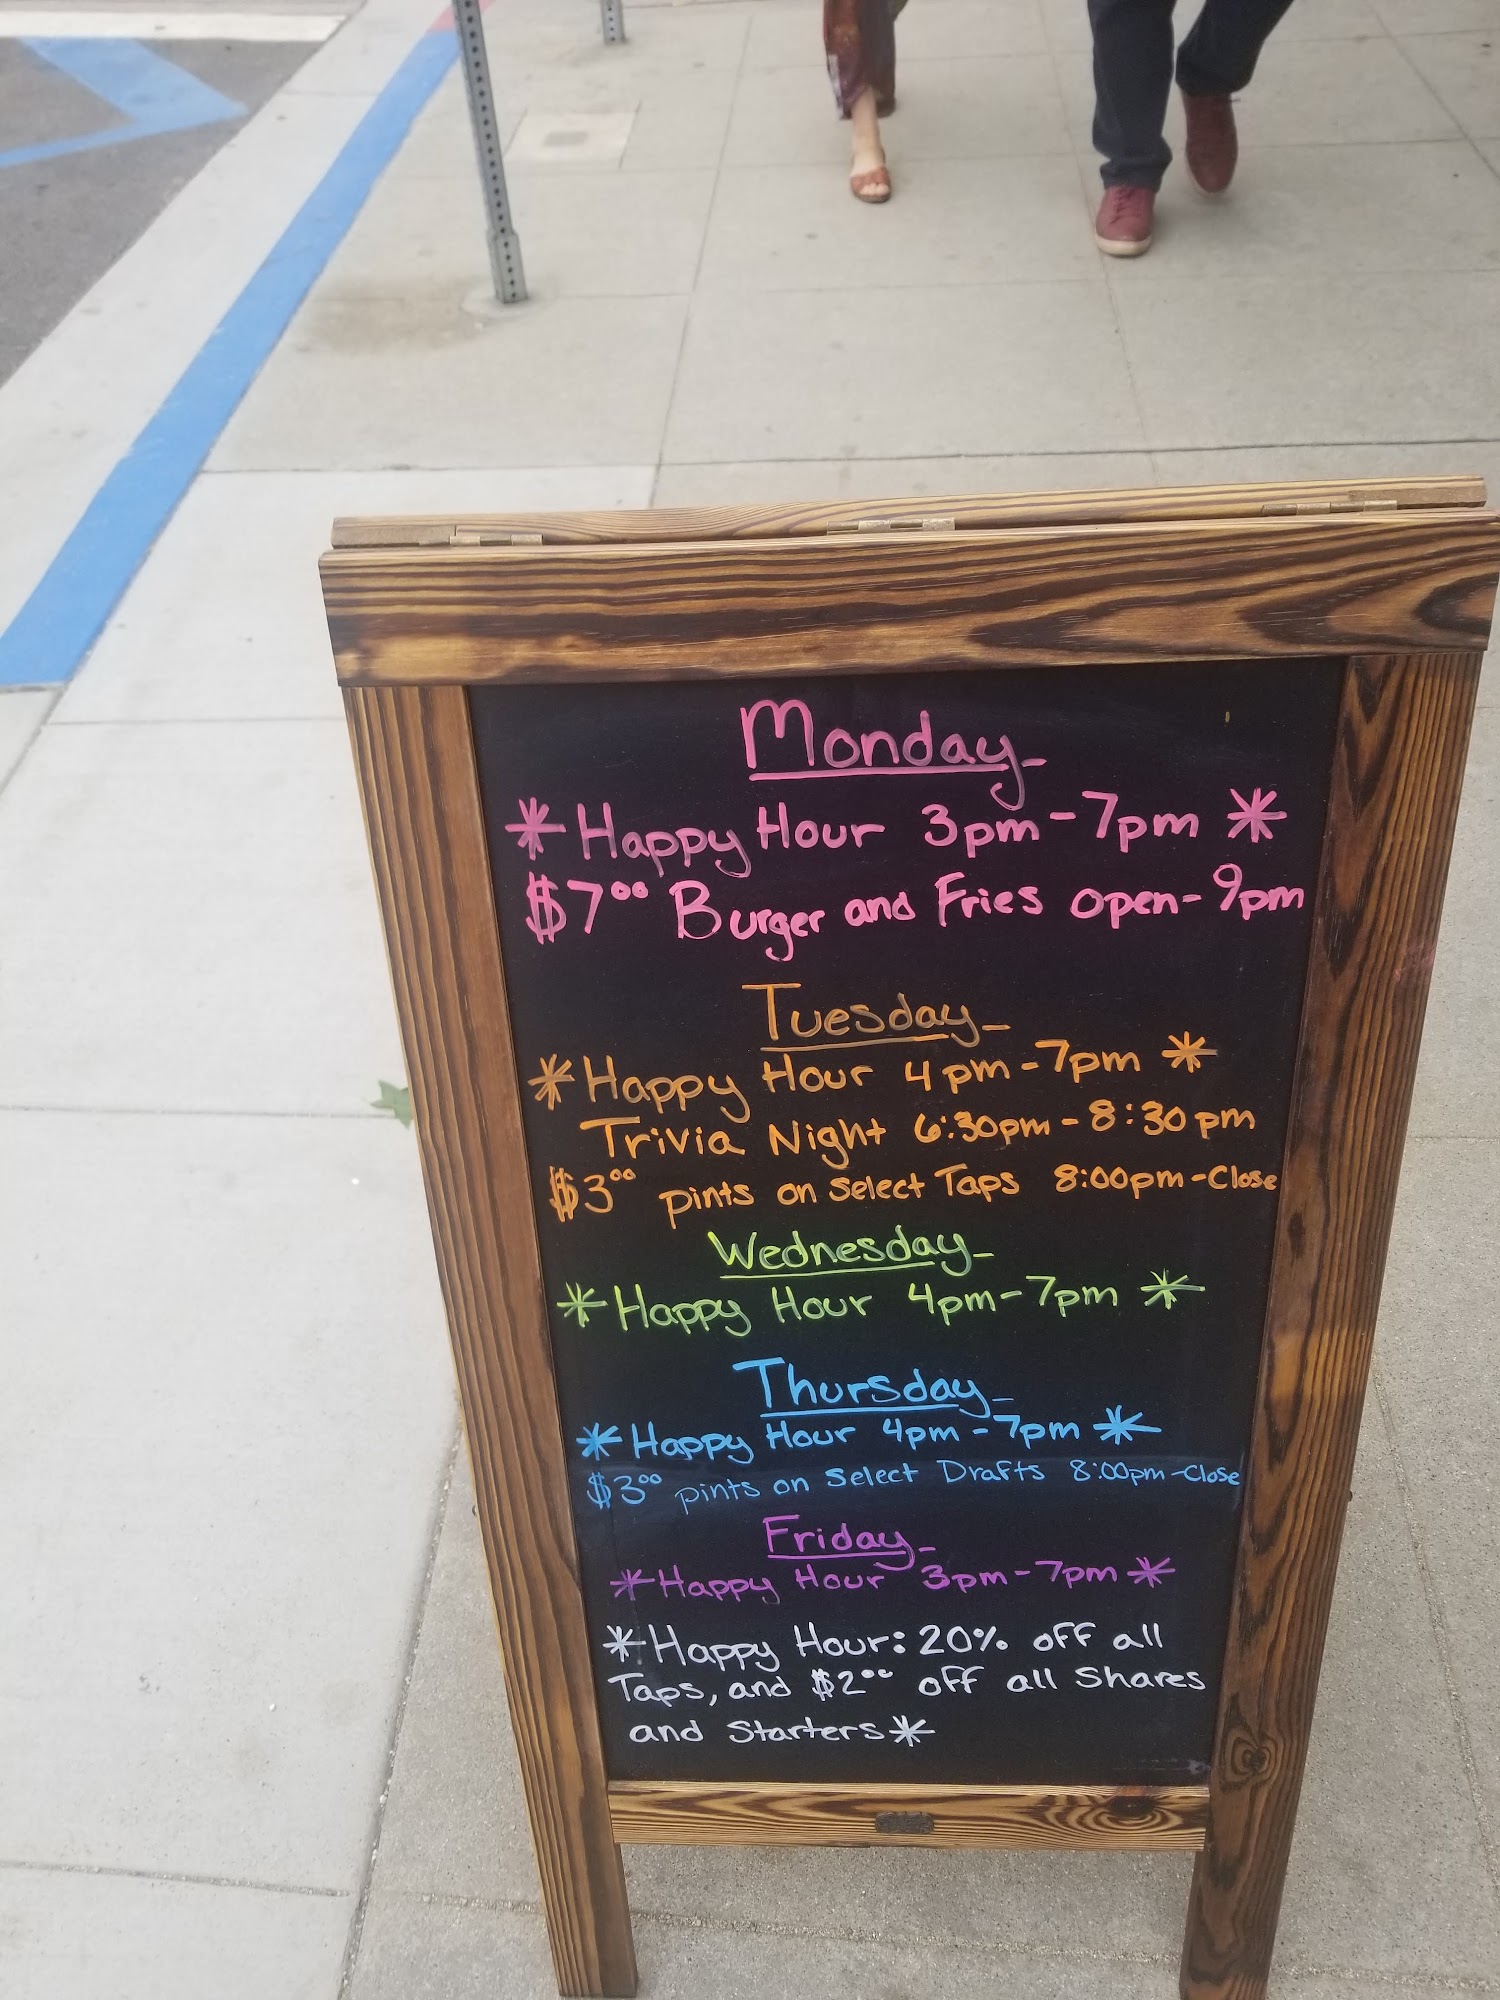 Monday
*Happy Hour 3pm-7pm*
$7.00 Burger and Fries open-9pm
Tuesday
*Happy Hour 4pm-7pm*
Trivia Night 6:30pm-8:30pm
$3.00 pints on Select Taps 8:00pm-Close
Wednesday
*Happy Hour 4pm-7pm*
Thursday
*Happy Hour 4pm-7pm*
$3.00 pints on select Drafts 8:00pm-Close
Friday
*Happy Hour 3pm-7pm*
*Happy Hour: 20% off all
Taps, and $2.00 off all Shares
and Starters*